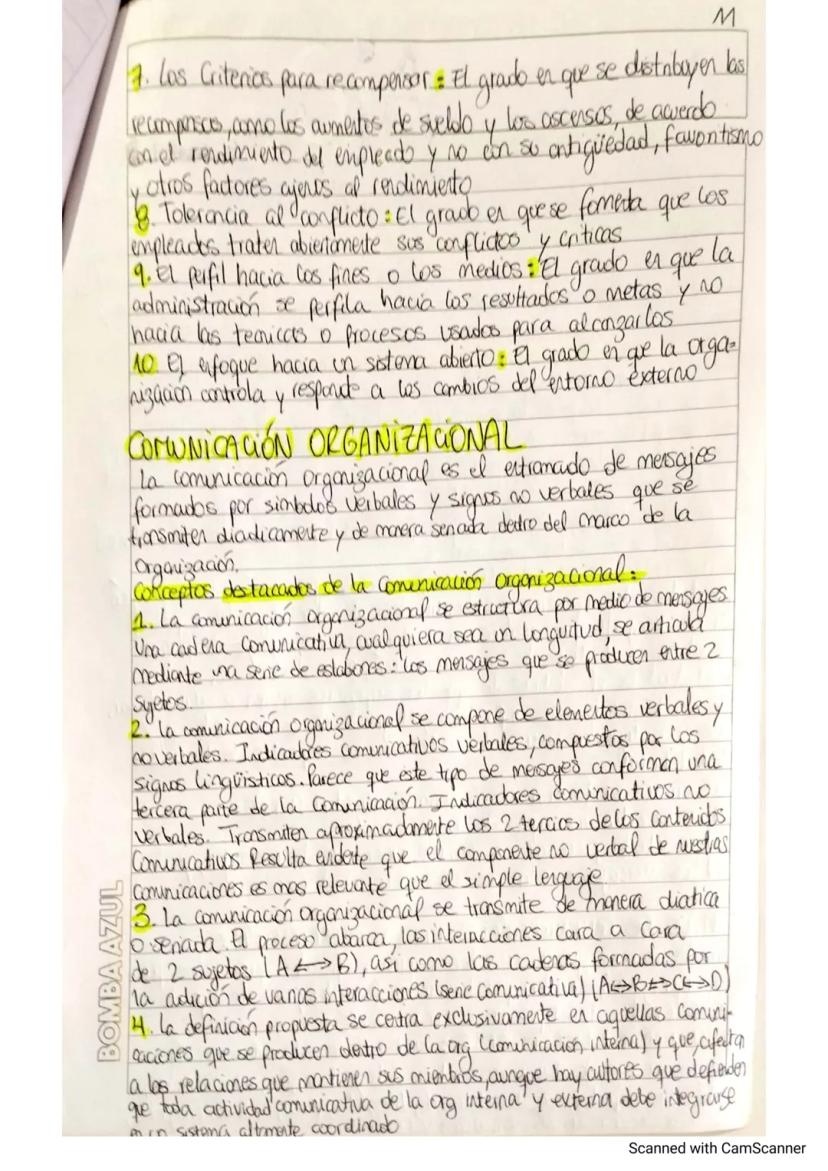 11
7. Los Criterios para recompensar: El grado en que se distribuyen las
recompensas, como los aumentos de sueldo y los ascensos, de acuerdo
con el rendimiento del empleado y no con su antigüedad, favoritismo
y otros factores ajenos al rendimiento
8. Tolerancia al conflicto: El grado en que se fomenta que los
empleados traten abiertamente sus conflictos y criticas
9. El perfil hacia los fines o los medios: El grado en que la
administración se perfila hacia los resultados o metas y no
hacia las tecnicas o procesos usados para alcanzarlos
10 El enfoque hacia un sistema abierto: El grado en que la orga-
nización controla y responde a los cambios del entorno externo
COMUNICACIÓN ORGANIZACIONAL
La comunicación organizacional es el entramado de mensajes
formados por simbolos verbales y signos no verbales que se
transmiten diadicamente y de manera seriada dentro del marco de la
Organización.
Conceptos destacados de la Comunicación Organizacional:
1. La comunicación organizacional se estructura por medio de mensajes
Una cadena comunicativa, cualquiera sea un longuitud, se articula
mediante una serie de eslabones: los mensajes que se producen entre 2
Sujetos.
2. La comunicación organizacional se compone de elementos verbales y
no verbales. Indicadores comunicativos verbales, compuestos por los
signos lingüisticos. Parece que este tipo de mensajes conforman una
tercera parte de la Comunicación. Indicadores comunicativos no
verbales. Transmiten aproximadamente los 2 tercios de los contenidos
Comunicativos Resulta evidente que el componente no verbal de nuestras
Comunicaciones es mas relevante que el simple lenguaje
3. La comunicación organizacional se transmite de manera diatica
O seriada. El proceso abarca, las interacciones cara a cara
de 2 sujetos (A↔B), así como las cadenas formadas por
la adición de varias interacciones (serie comunicativa) (A↔B↔C↔D)
4. La definición propuesta se centra exclusivamente en aquellas comuni-
caciones que se producen dentro de la org (comunicacion interna) y que, afectan
a las relaciones que mantienen sus miembros, aunque hay autores que defienden
que toda actividad comunicativa de la org interna y externa debe integrarse
en un sistema altamente coordinado
BOMBA AZUL
Scanned with CamScanner